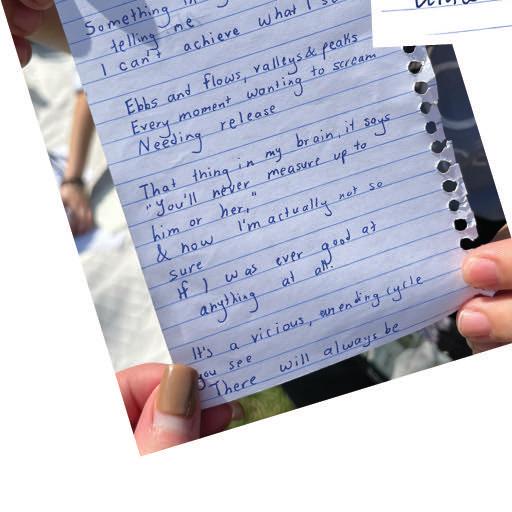 Something
telling me
I can't achieve what I
Ebbs and flows, valleys & peaks
Every moment wanting to scream
Needing release
That thing in my brain, it says
"You'll never measure up to
him or her,"
& now I'm actually not so
sure
If I was ever good at
anything at all.
It's a vicious, unending cycle
you see
There will always be